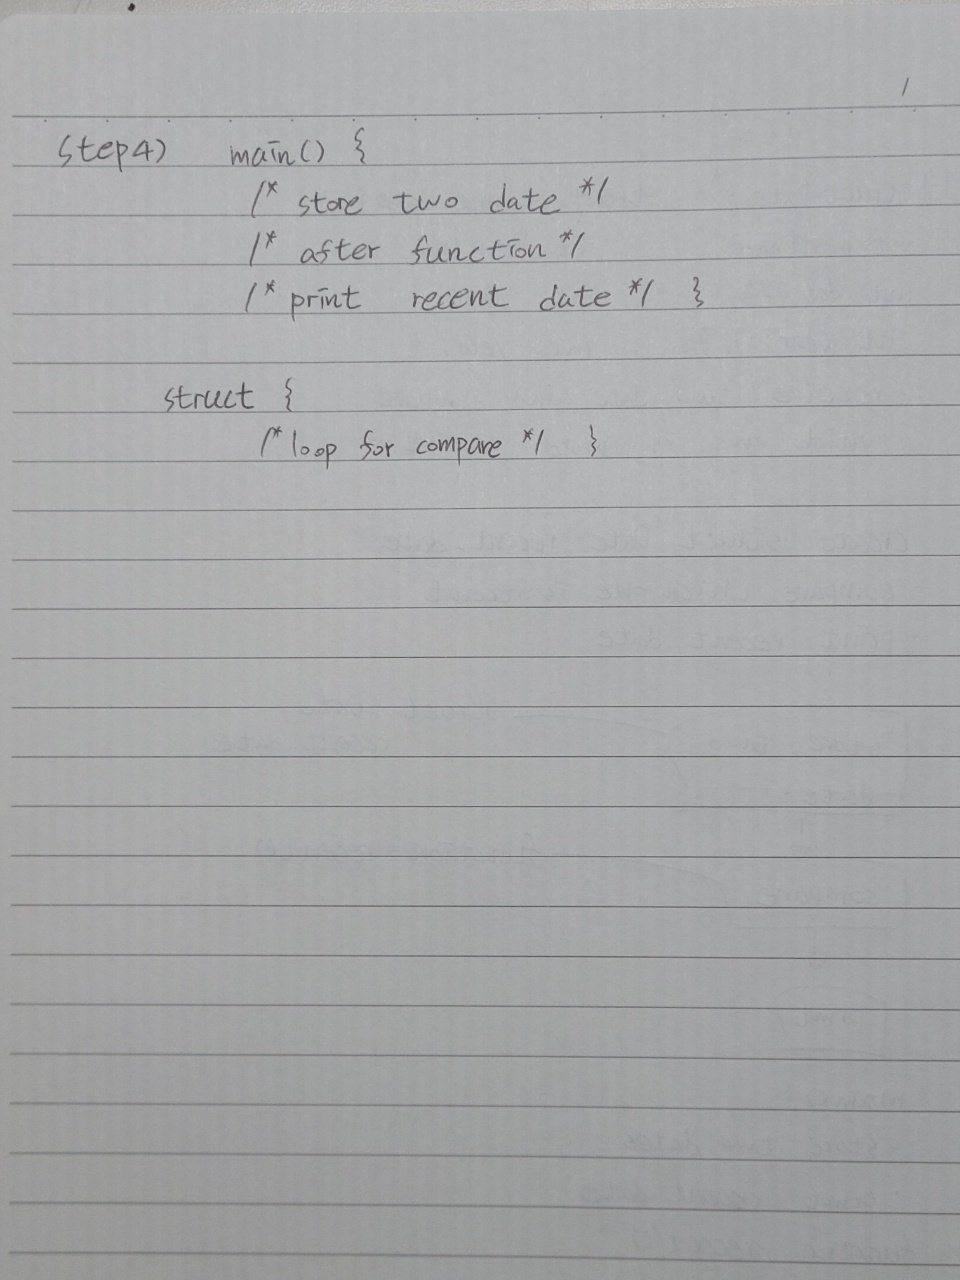 step4) main() {
/* store two date */
/* after function */
/* print recent date */ }
struct {
/* loop for compare */ }